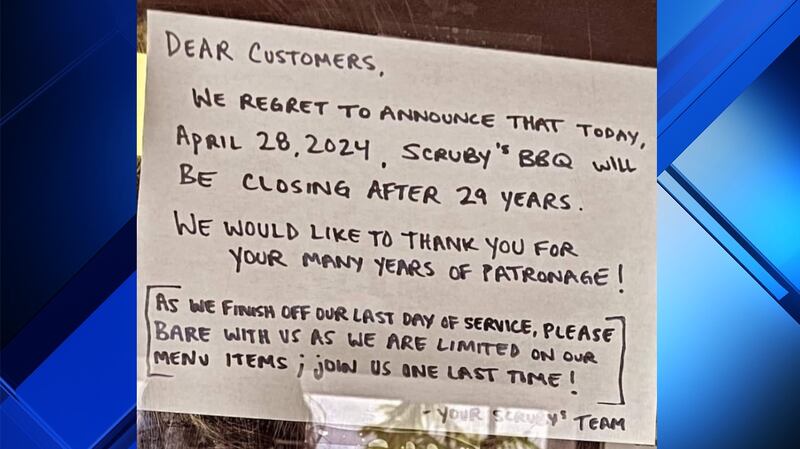 DEAR CUSTOMERS,
WE REGRET TO ANNOUNCE THAT TODAY,
APRIL 28, 2024, SCRUBY'S BBQ WILL
BE CLOSING AFTER 29 YEARS.
WE WOULD LIKE TO THANK YOU FOR
YOUR MANY YEARS OF PATRONAGE!
AS WE FINISH OFF OUR LAST DAY OF SERVICE, PLEASE
BARE WITH US AS WE ARE LIMITED ON OUR
MENU ITEMS; JOIN US ONE LAST TIME!
- YOUR SCRUBY'S TEAM